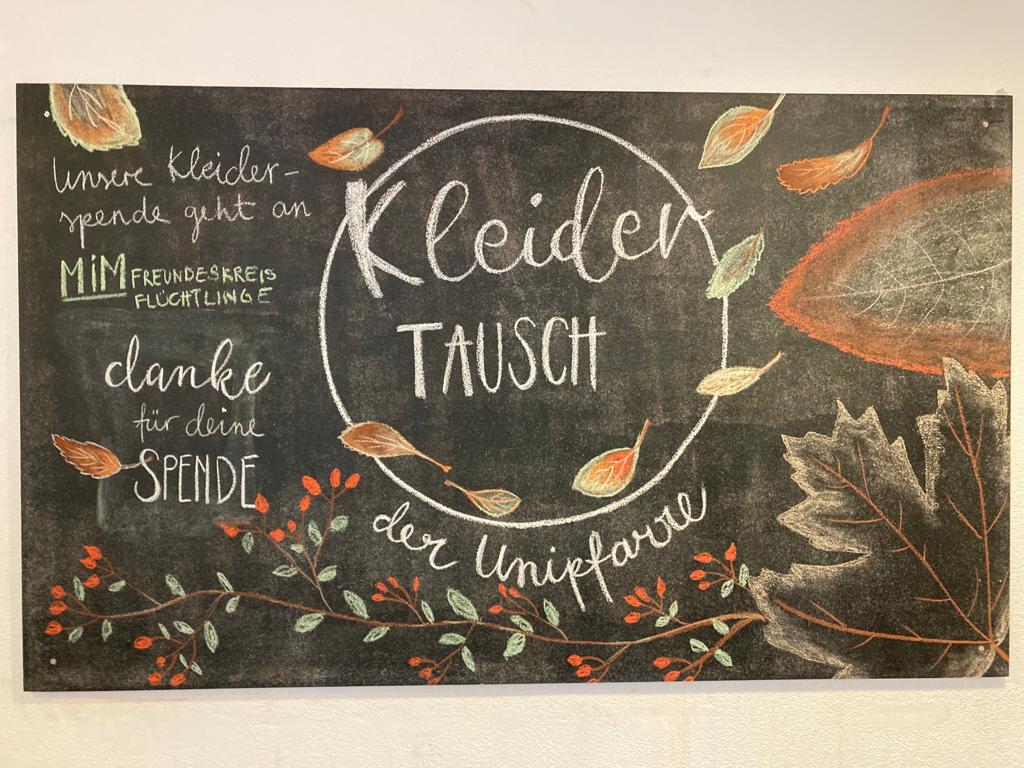 Unsere Kleider-
spende geht an
MiM FREUNDESKREIS
FLÜCHTLINGE
danke
für deine
SPENDE
Kleider
TAUSCH
der Unipfarre